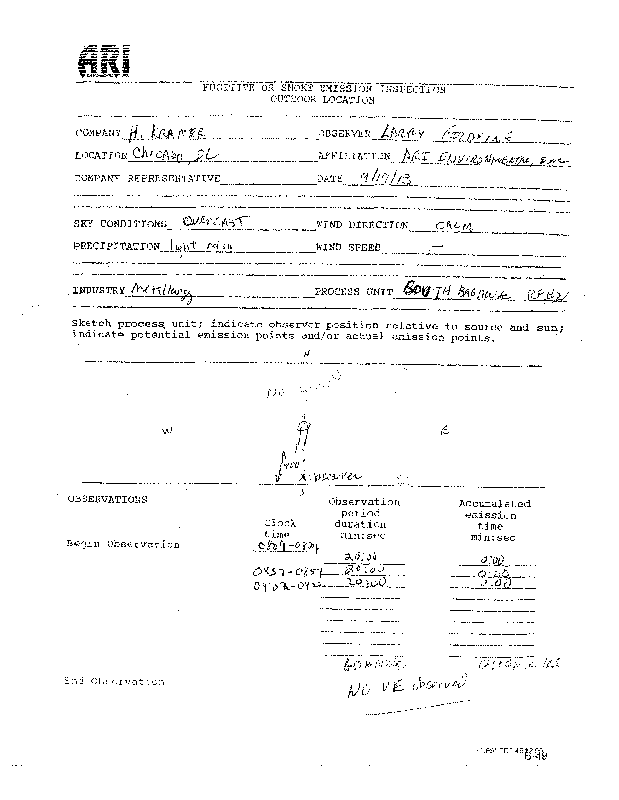 ARI
FUGITIVE OR SMOKE EMISSION INSPECTION
OUTDOOR LOCATION
COMPANY H. KRAMER OBSERVER LARRY
LOCATION Chicago IL AFFILIATION ARI ENVIRONMENTAL, INC
COMPANY REPRESENTATIVE DATE 9/17/13
SKY CONDITIONS OVERCAST WIND DIRECTION CALM
PRECIPITATION light rain WIND SPEED —
INDUSTRY Metallurgy PROCESS UNIT SOUTH BAGHOUSE
Sketch process unit; indicate observer position relative to source and sun;
indicate potential emission points and/or actual emission points.
N
NO
W E
400'
X observer
S
OBSERVATIONS
Observation period duration min:sec
Accumulated emission time min:sec
Clock time
Begin Observation
20:00 0:00
0837-0857 20:00 0:00
20:00 0:00
End Observation
NO VE observed